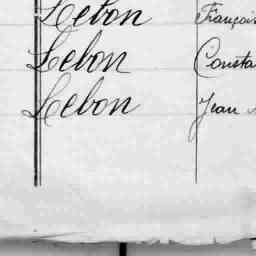 Lebon Françoi
Lebon Consta
Lebon Jean